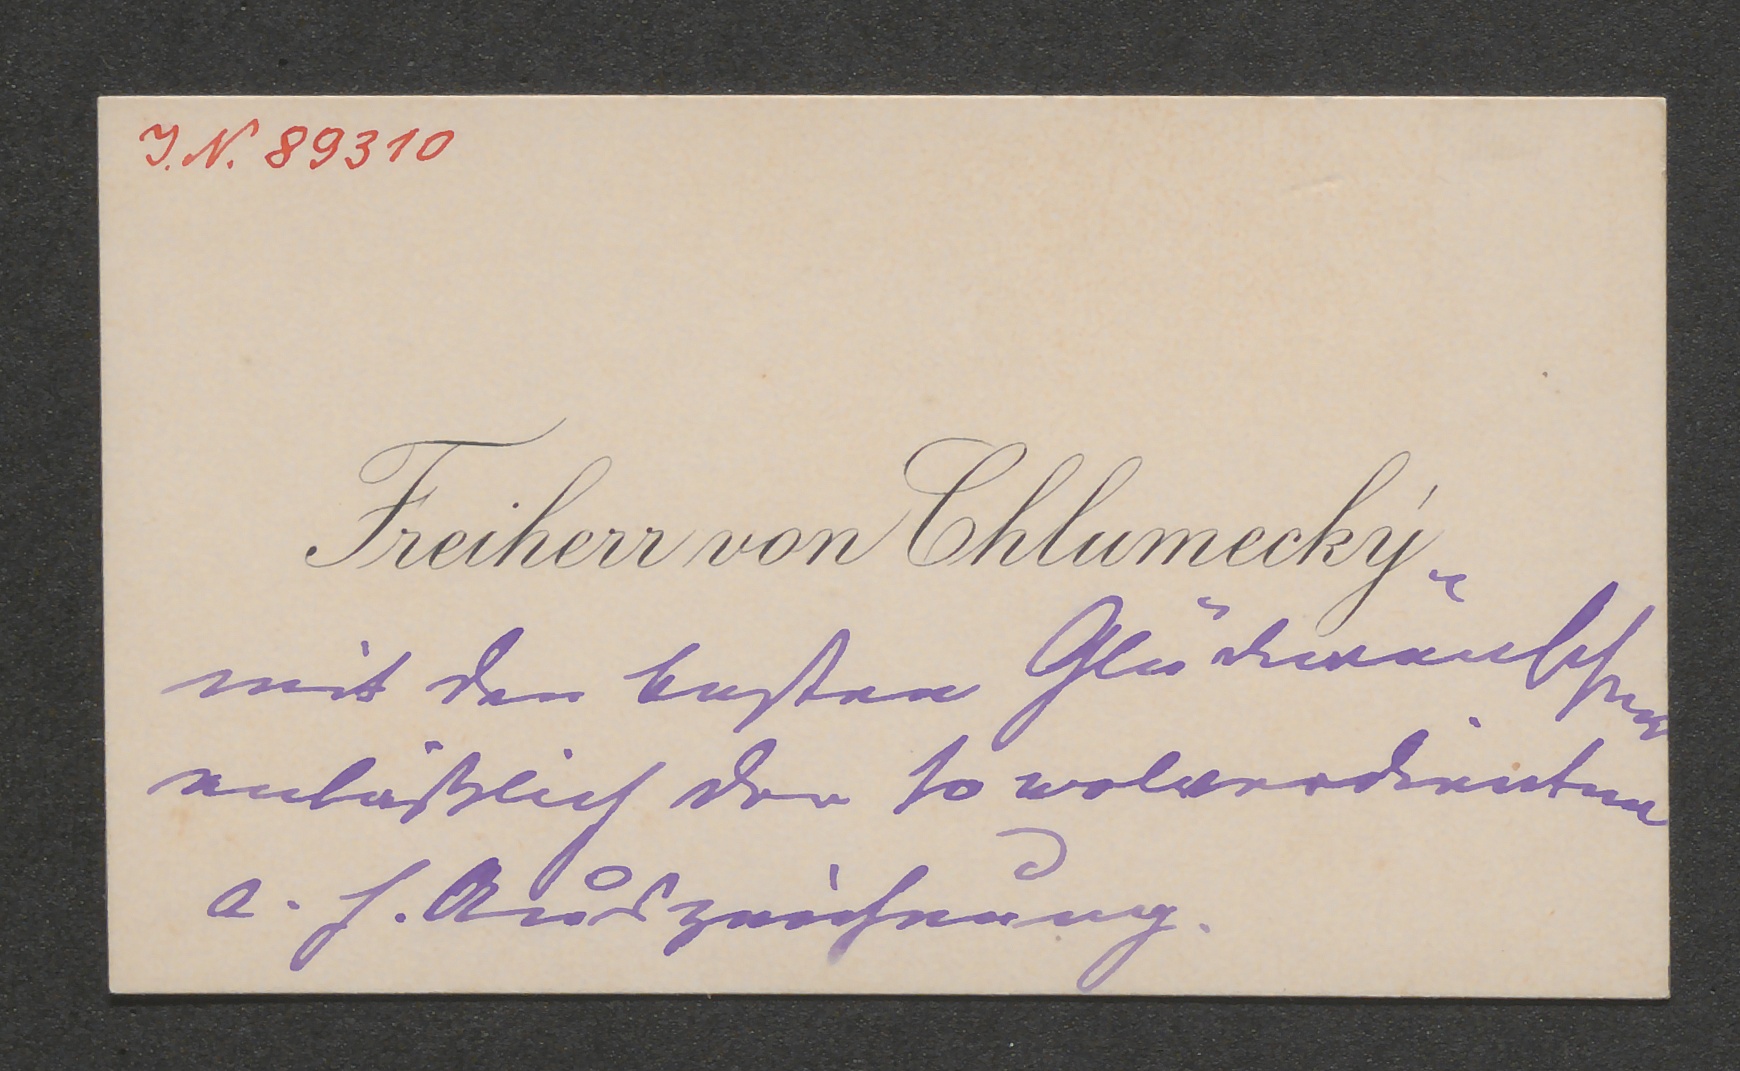 I.N. 89310
Freiherr von Chlumecký
mit den besten Glückwünschen
anläßlich der so wolverdienten
a. h. Auszeichnung.